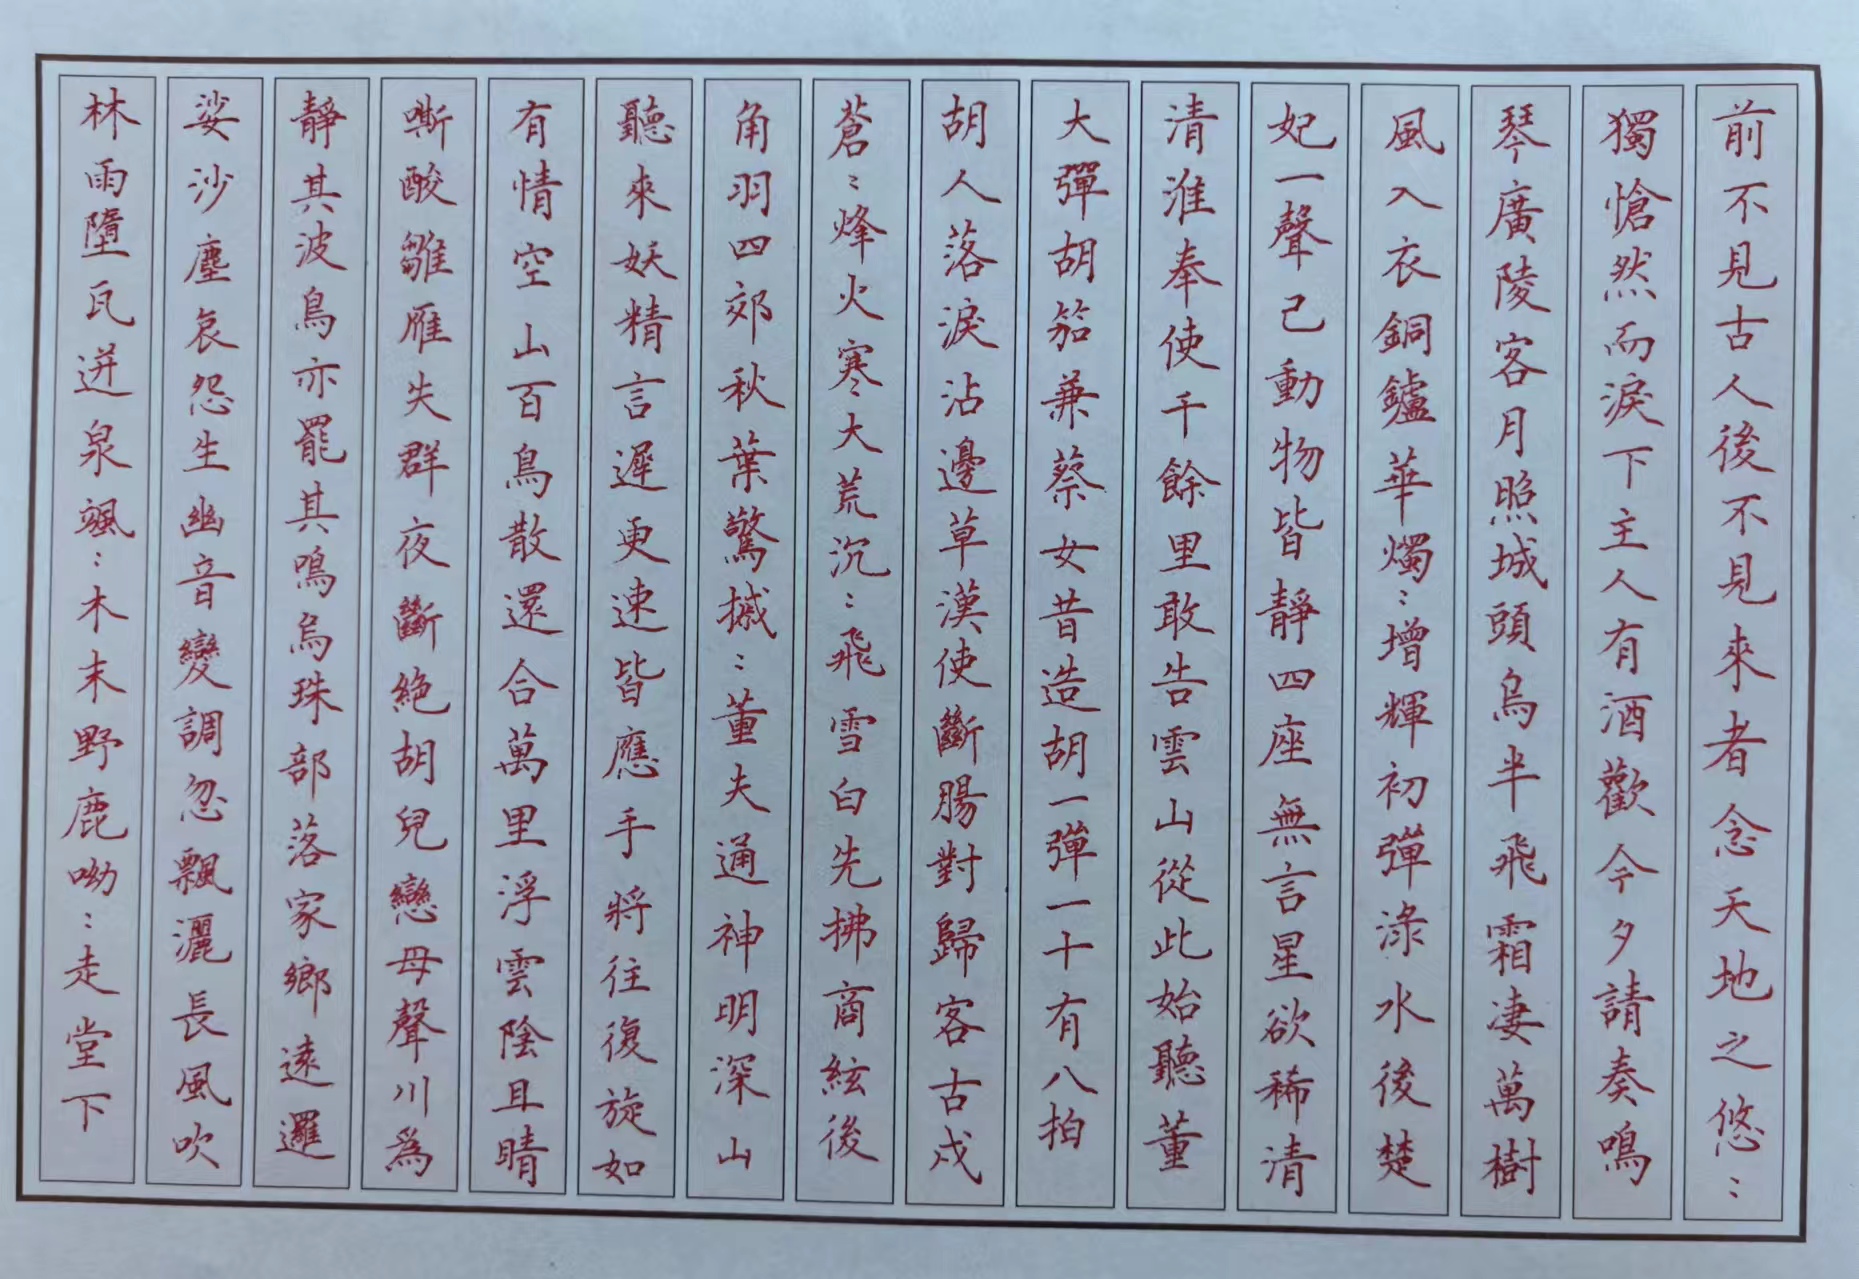 前不見古人後不見來者念天地之悠：
獨愴然而淚下主人有酒歡今夕請奏鳴
琴廣陵客月照城頭烏半飛霜淒萬樹
風入衣銅鑪華燭：增輝初彈淥水後楚
妃一聲已動物皆靜四座無言星欲稀清
清淮奉使千餘里敢告雲山從此始聽董
大彈胡笳兼蔡女昔造胡一彈一十有八拍
胡人落淚沾邊草漢使斷腸對歸客古戍
蒼：烽火寒大荒沉：飛雪白先拂商絃後
角羽四郊秋葉驚摵：董夫通神明深山
聽來妖精言遲更速皆應手將往復旋如
有情空山百鳥散還合萬里浮雲陰且晴
嘶酸雛雁失群夜斷絕胡兒戀母聲川為
靜其波鳥亦罷其鳴烏珠部落家鄉遠邏
娑沙塵哀怨生幽音變調忽飄灑長風吹
林雨墮瓦迸泉颯：木末野鹿呦：走堂下